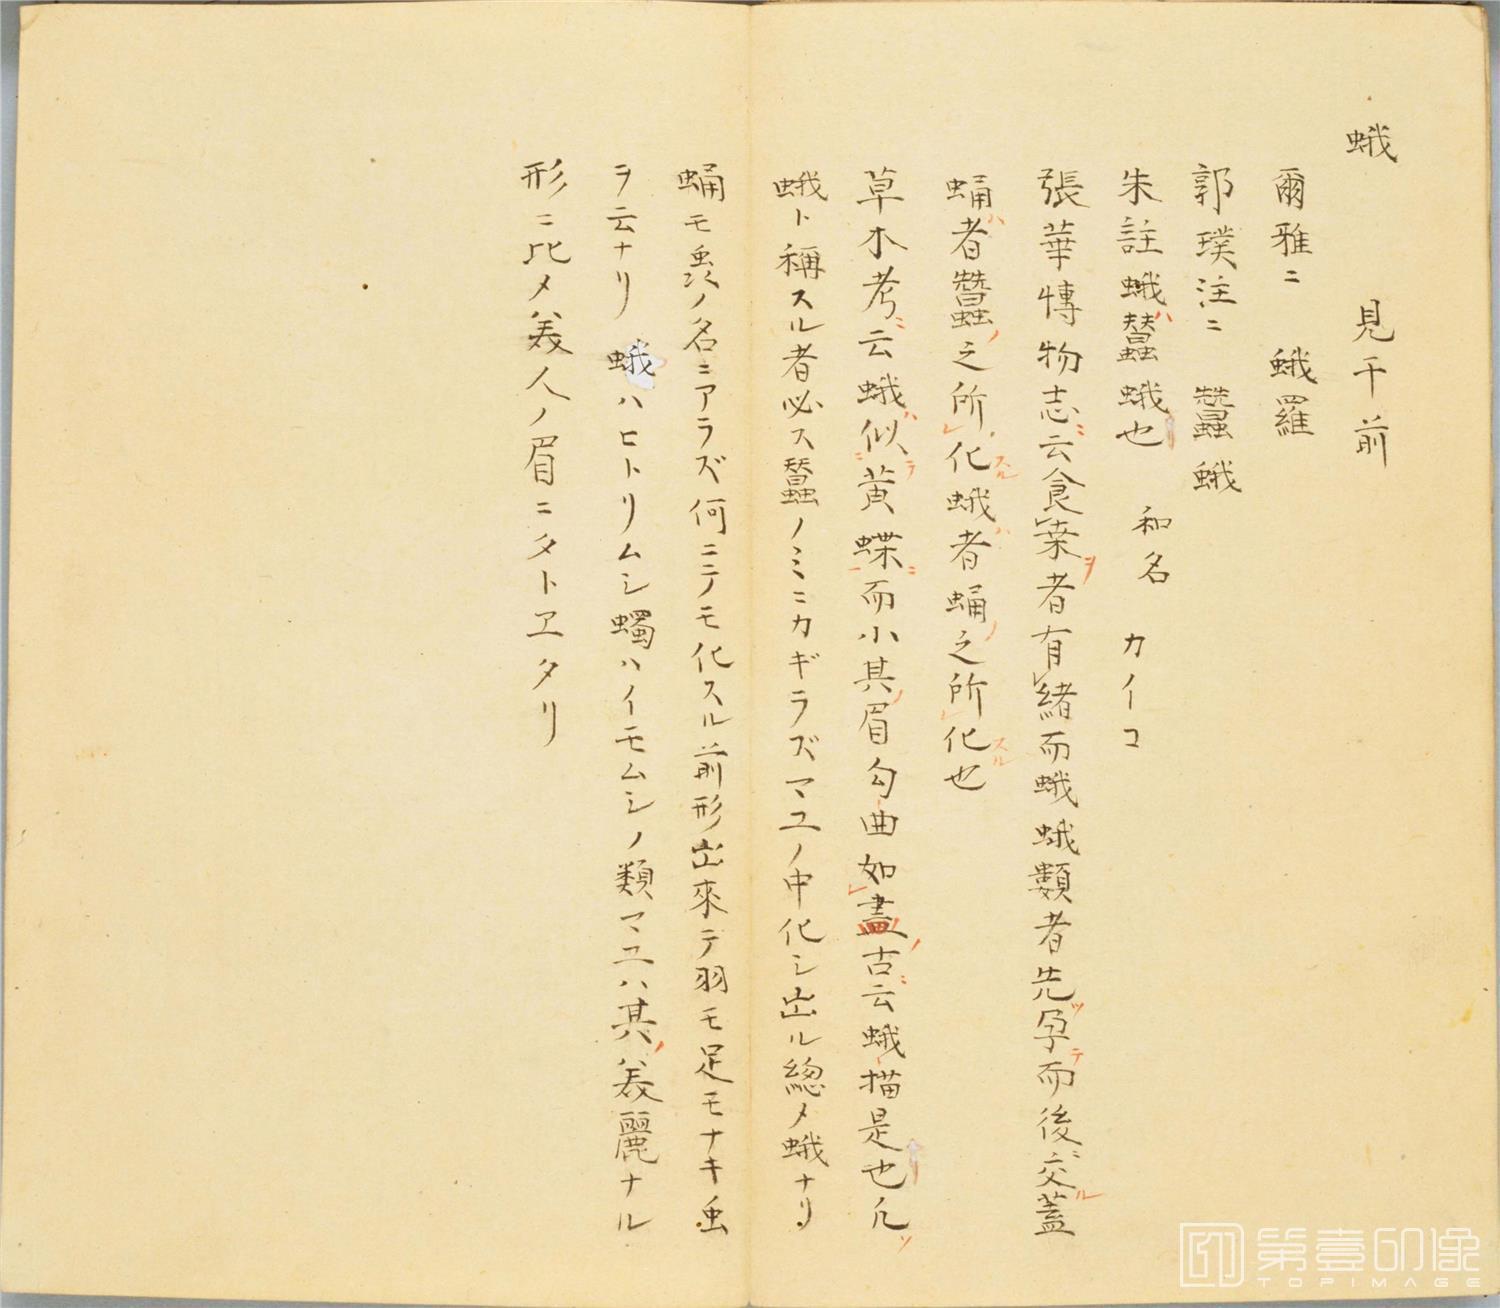 蛾　見干前
爾雅ニ　蛾羅
郭璞注ニ　蠶蛾
朱註蛾ハ蠶蛾也　和名　カイコ
張華博物志ニ云食桒ヲ者有緒而蛾蛾類者先孕ツテ而後交ル蓋
蛹ハ者蠶ノ之所化スル蛾ハ者蛹ノ之所化スル也
草木考ニ云蛾ハ似テ黄蝶ニ而小其ノ眉勾曲如畫ノ古ニ云蛾描是也凡ソ
蛾ト稱スル者必ス蠶ノミニカギラズマユノ中化シ出ル総メ蛾ナリ
蛹モ虫ノ名ニアラズ何ニテモ化スル前形出來テ羽モ足モナキ虫
ヲ云ナリ蛾ハヒトリムシ蠋ハイモムシノ類マユハ其ノ美麗ナル
形ニ比メ美人ノ眉ニタトヱタリ
第壹印像
TOPIMAGE